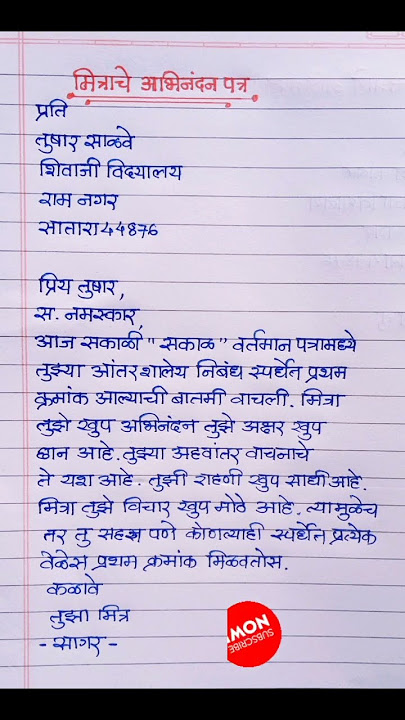 मित्राचे अभिनंदन पत्र
प्रति
तुषार साळवे
शिवाजी विद्यालय
राम नगर
सातारा 44876
प्रिय तुषार,
स. नमस्कार,
आज सकाळी "सकाळ" वर्तमान पत्रामध्ये
तुझ्या आंतरशालेय निबंध स्पर्धेत प्रथम
क्रमांक आल्याची बातमी वाचली. मित्रा
तुझे खुप अभिनंदन तुझे अक्षर खुप
छान आहे. तुझ्या अहवांतर वाचनाचे
ते यश आहे. तुझी राहणी खुप साधी आहे.
मित्रा तुझे विचार खुप मोठे आहे. त्यामुळेच
तर तु पणे कोणत्याही स्पर्धेत प्रत्येक
वेळेस प्रथम क्रमांक मिळवतोस.
कळावे
तुझा मित्र
- सागर -
SUBSCRIBE
NOW